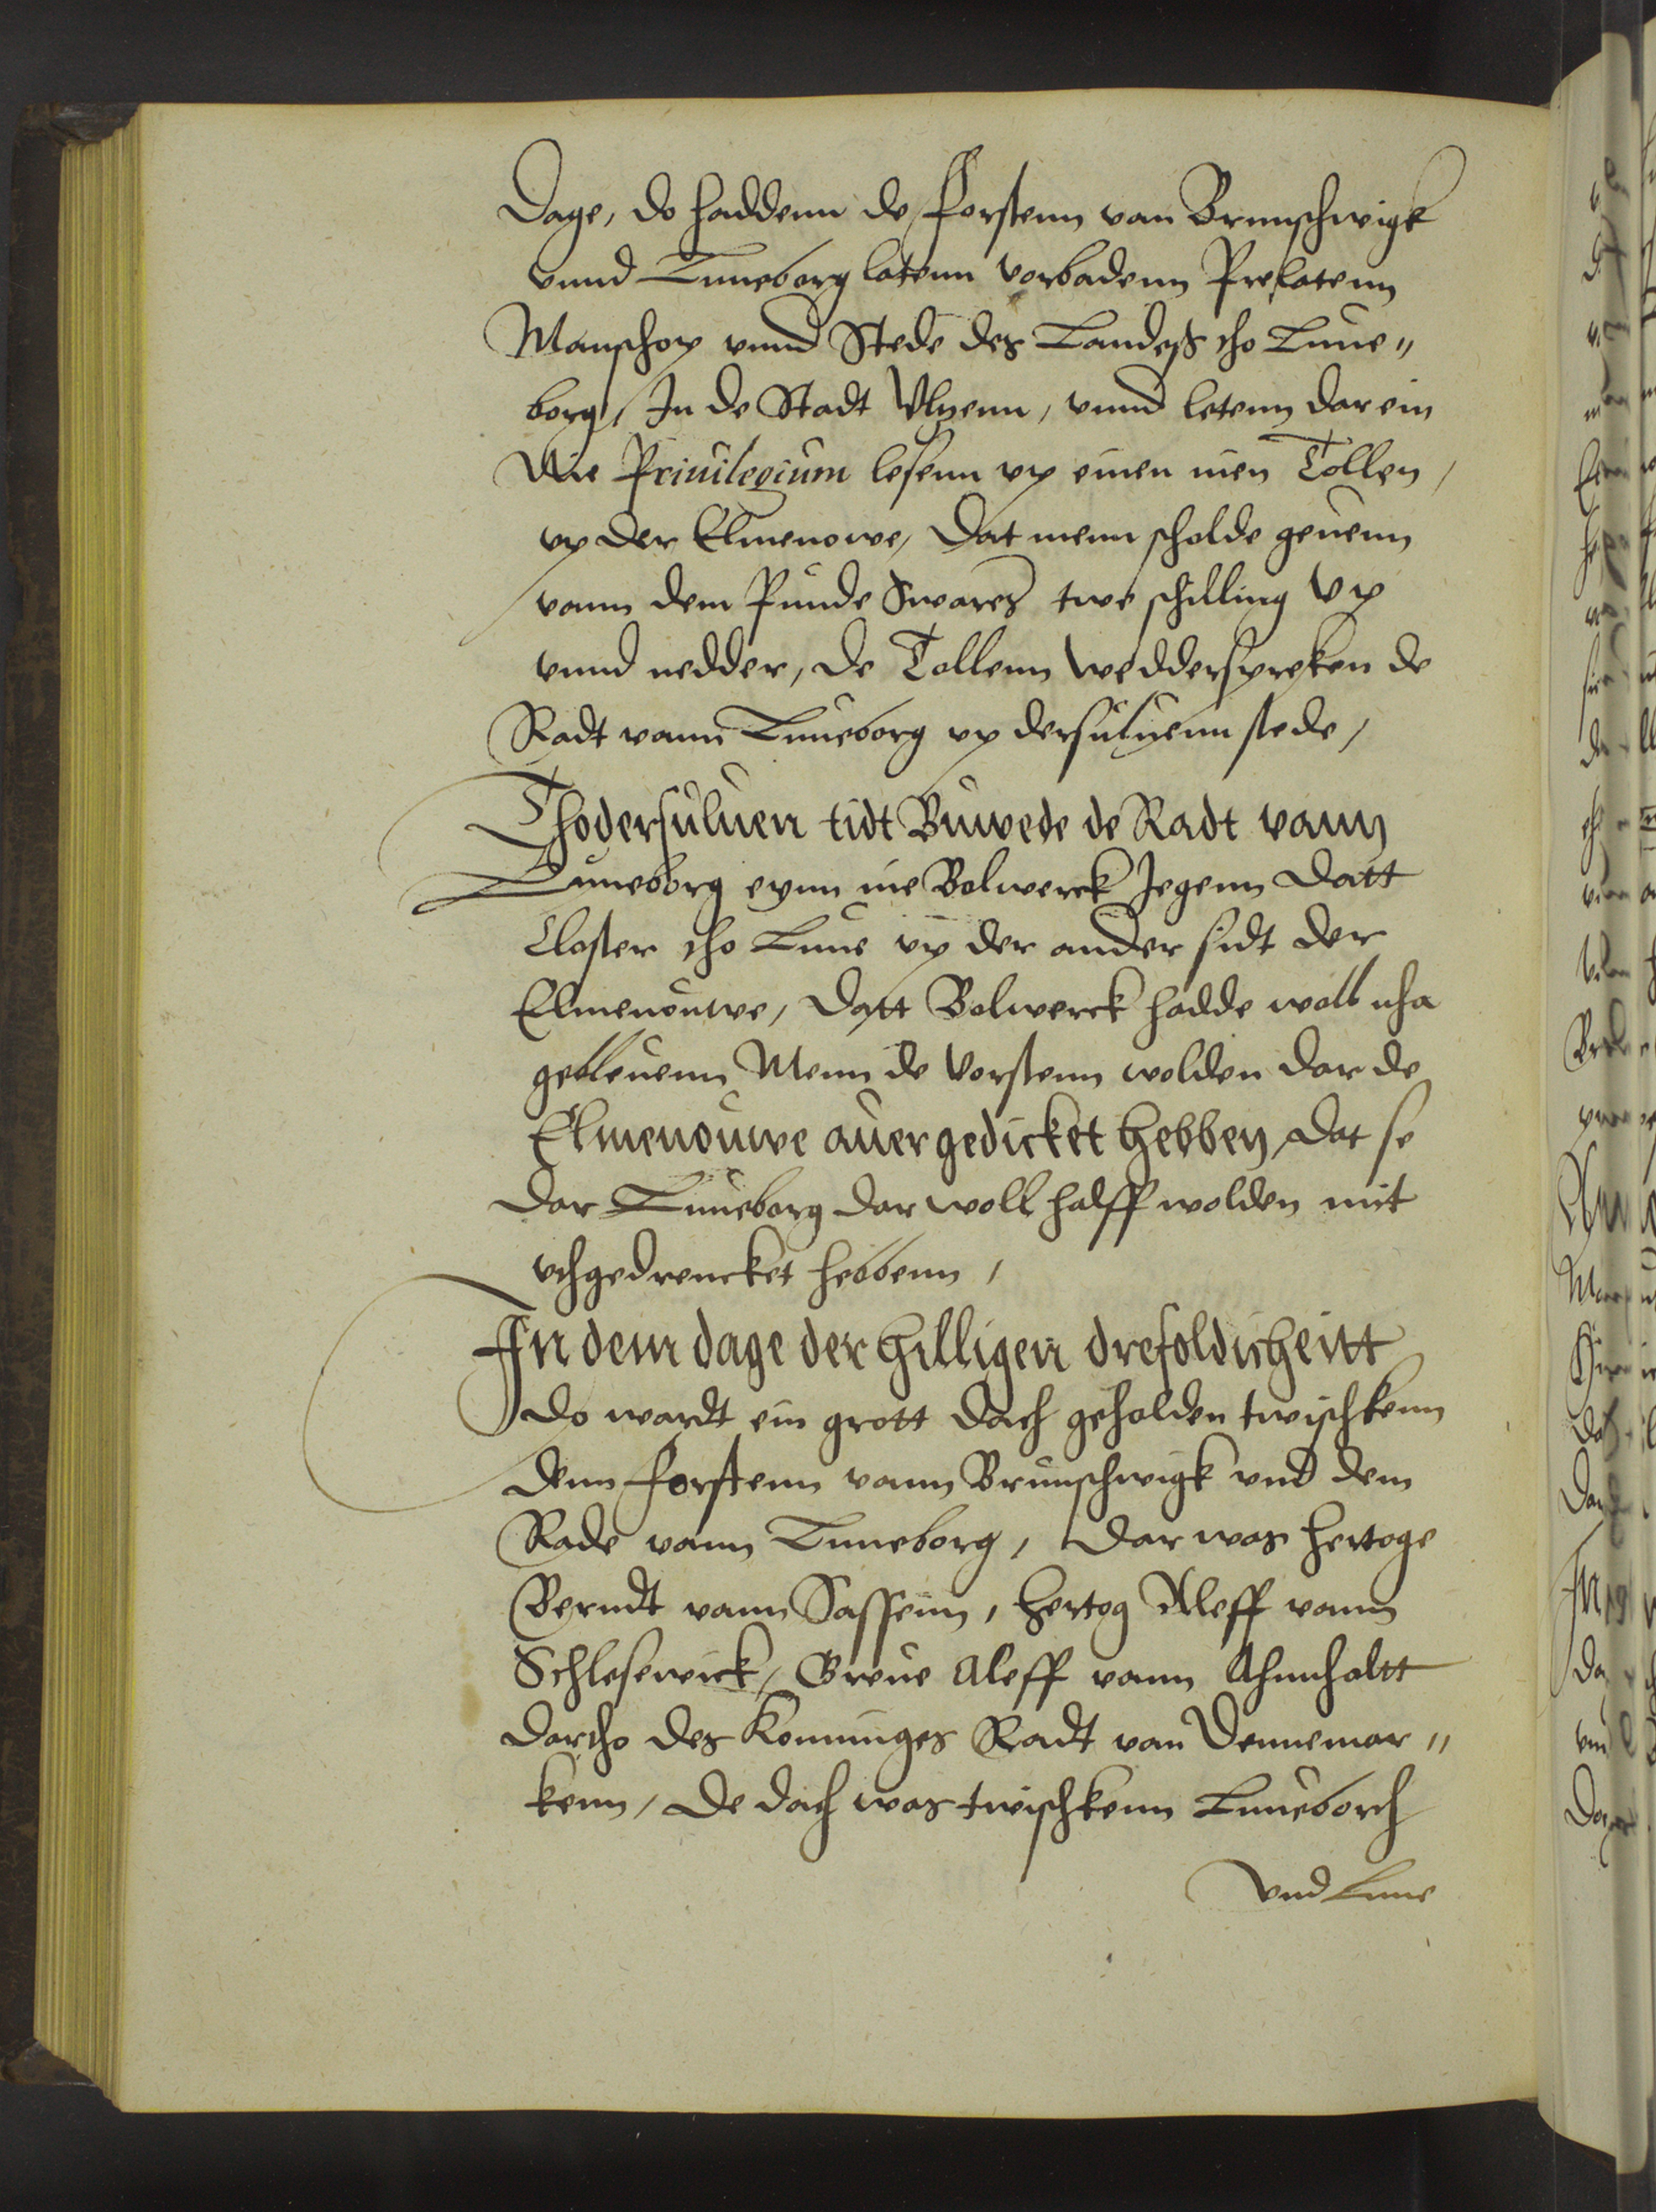 Dage, do haddenn de Forstenn van Brunschwigk
vnnd Luneborg latenn vorbadenn Prelatenn
Manschop vnnd Stede des Landeß tho Lune"
borg, In de Stadt Vlzenn, vnnd letenn dar ein
Nie Priuilegium lesenn vp einen nien Tollen,
vp der Elmenowe, Dat menn scholde geuenn
vann dem Punde Swares twe schilling Vp
vnnd nedder, de Tollenn wedderspreken de
Radt vann Luneborg vp dersuluenn stede,
Thodersuluen tidt Buwede de Radt vann
Luneborg eynn nie Bolwerck Jegenn Datt
Closter tho Lune vp der ander sidt der
Elmenouwe, Datt Bolwerck hadde woll nha
gebleuenn Menn de Vorstenn wolden dar de
Elmenouwe auergedicket hebben, Dat se
dar Luneborg dar woll halff wolden mit
vthgedrencket hebbenn,
In dem dage der hilligen drefoldicheitt
Do wardt ein grott Dach geholden twischkenn
denn Forstenn vann Brunschwigk vnd dem
Rade vann Luneborg, Dar was hertoge
Berndt vann Sassenn, hertog Aleff vann
Schlesewick, Greue Aleff vann Ahnhaltt
Dartho des Konninges Radt van Dennemar"
kenn, De dach was twischkenn Luneborch
Vnd Lune